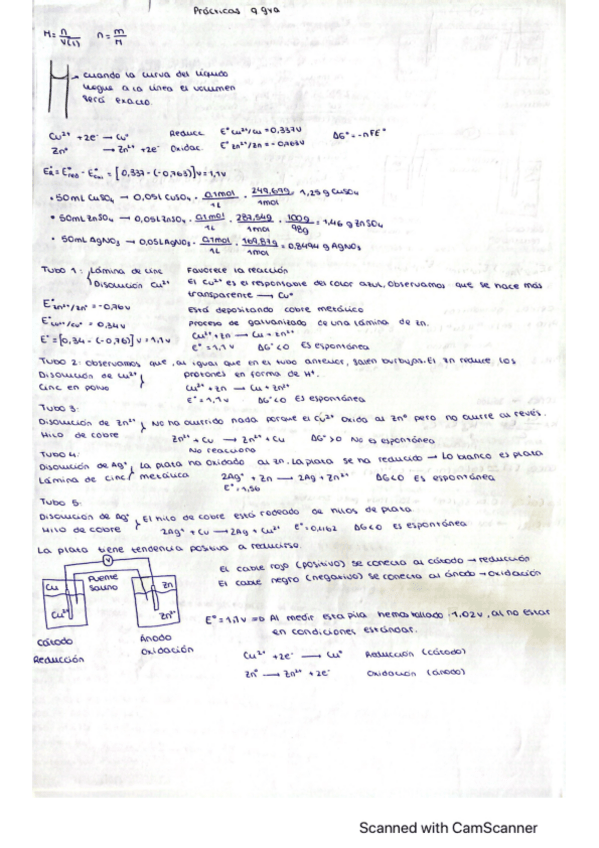 Prácticas 9 gva
M = n/V(l)   n = m/M
cuando la curva del líquido
llegue a la línea el volumen
será exacto.
Cu²⁺ + 2e⁻ → Cu⁰   Reducc.   E°Cu²⁺/Cu = 0,337V   ΔG° = -nFE°
Zn⁰ → Zn²⁺ + 2e⁻ Oxidac.   E°Zn²⁺/Zn = -0,763V
= [0,337 - (-0,763)]V = 1,1V
• 50mL CuSO₄ → 0,05L CuSO₄ · 0,1mol/1L · 249,69g/1mol 1,25g CuSO₄
• 50mL ZnSO₄ → 0,05L ZnSO₄ · 0,1mol/1L · 287,54g/1mol · 100g/98g = 1,46g ZnSO₄
• 50mL AgNO₃ → 0,05L AgNO₃ · 0,1mol/1L · 169,87g/1mol = 0,8494g AgNO₃
Tubo 1: Lámina de cinc   Favorece la reacción
Disolución Cu²⁺   El Cu²⁺ es el responsable del color azul. Observamos que se hace más
transparente → Cu⁰
E°Zn²⁺/Zn⁰ = -0,76V   Está depositando cobre metálico
E°Cu²⁺/Cu⁰ = 0,34V   Proceso de galvanizado de una lámina de Zn.
E° = [0,34 - (-0,76)]V = 1,1V   Cu²⁺ + Zn → Cu + Zn²⁺
E° = 1,1V   ΔG° < 0 Es espontánea
Tubo 2: Observamos que, al igual que en el tubo anterior, salen burbujas. El Zn reduce los
Disolución de Cu²⁺   protones en forma de H⁺.
Cinc en polvo   Cu²⁺ + Zn → Cu + Zn²⁺
E° = 1,1V   ΔG° < 0 Es espontánea
Tubo 3:
Disolución de Zn²⁺   No ha ocurrido nada porque el Cu²⁺ oxida al Zn⁰ pero no ocurre al revés.
Hilo de cobre   Zn²⁺ + Cu → Zn²⁺ + Cu   ΔG° > 0 No es espontánea
No reacciona
Tubo 4:
Disolución de Ag⁺   La plata ha oxidado al Zn. La plata se ha reducido → Lo blanco es plata
Lámina de cinc   metálica   2Ag⁺ + Zn → 2Ag + Zn²⁺   ΔG<0 Es espontánea
E° = 1,56
Tubo 5:
Disolución de Ag⁺   El hilo de cobre está rodeado de hilos de plata
Hilo de cobre   2Ag⁺ + Cu → 2Ag + Cu²⁺   E° = 0,462   ΔG<0 Es espontánea
La plata tiene tendencia positiva a reducirse.
V
El cable rojo (positivo) se conecta al cátodo → reducción
Cu   Puente salino   Zn
El cable negro (negativo) se conecta al ánodo → oxidación
Cu²⁺   Zn²⁺
E° = 1,1V ⇒ Al medir esta pila hemos hallado 1,02V, al no estar
en condiciones estándar.
Cátodo   Ánodo
Reducción   Oxidación
Cu²⁺ + 2e⁻ → Cu⁰   Reducción (cátodo)
Zn⁰ → Zn²⁺ + 2e⁻   Oxidación (ánodo)
Scanned with CamScanner